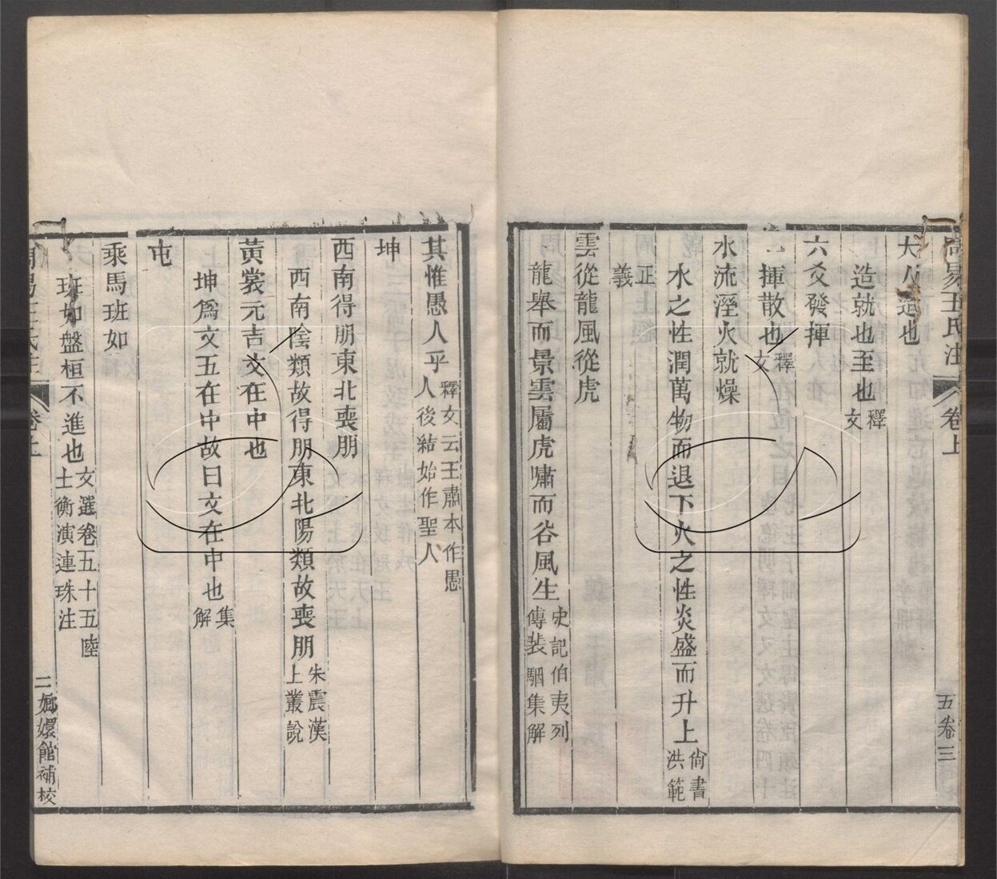 周易王氏注 卷上 五卷三
大人造也
造就也至也釋文
六爻發揮
揮散也釋文
水流溼火就燥
水之性潤萬物而退下火之性炎盛而升上尚書洪範
正義
雲從龍風從虎
龍舉而景雲屬虎嘯而谷風生史記伯夷列傳裴駰集解
其惟愚人乎釋文云王肅本作愚人後結始作聖人
坤
西南得朋東北喪朋
西南陰類故得朋東北陽類故喪朋朱震漢上叢說
黃裳元吉文在中也
坤爲文五在中故曰文在中也集解
屯
乘馬班如
班如盤桓不進也文選卷五十五陸士衡演連珠注
周易王氏注 卷上 二 嫏嬛館補校